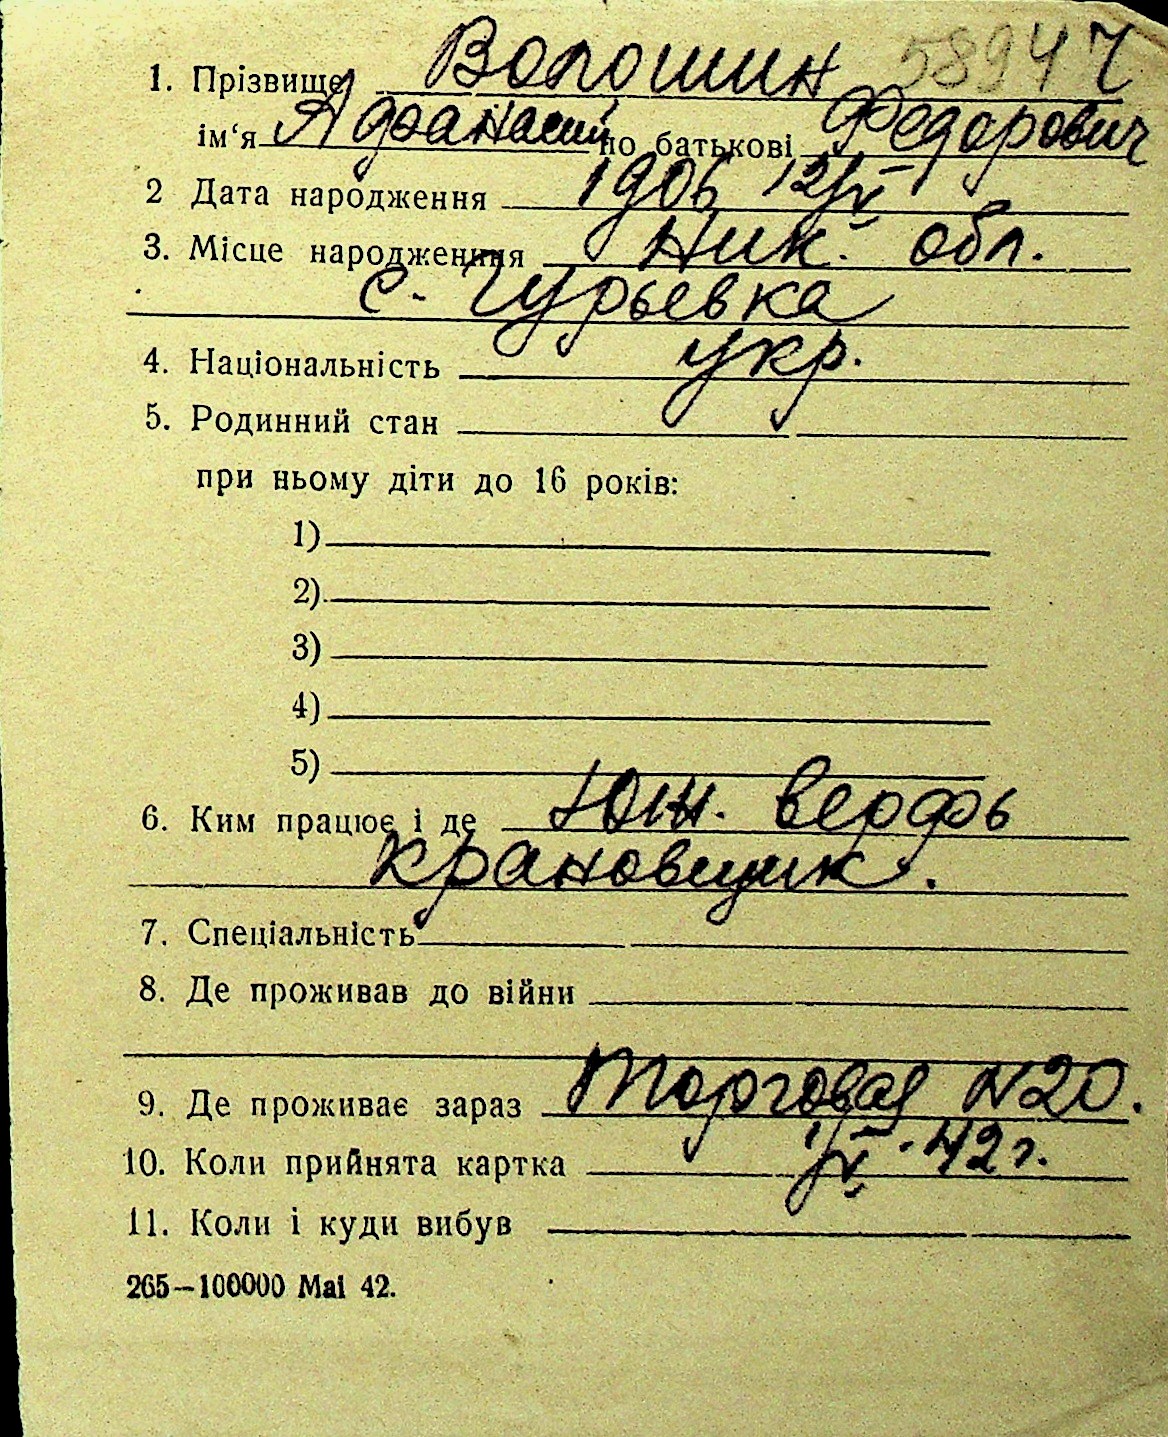 58944
1. Прізвище Волошин Ч
ім‘я Афанасий по батькові Федорович
2 Дата народження 1906 12/V
3. Місце народження Ник. обл.
с. Гурьевка
4. Національність укр.
5. Родинний стан
при ньому діти до 16 років:
1)
2)
3)
4)
5)
6. Ким працює і де Юж. верфь
крановщик.
7. Спеціальність
8. Де проживав до війни
9. Де проживає зараз Торговая N20.
10. Коли прийнята картка 1/V-42 г.
11. Коли і куди вибув
265—100000 Mai 42.